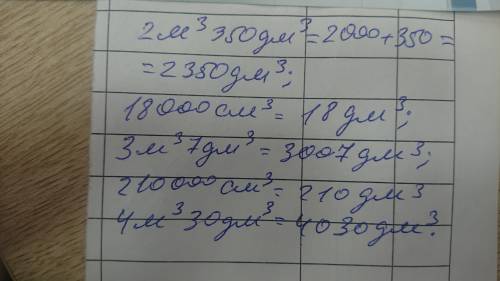 2м³ 350дм³=2000+350=
=2350дм³;
18000см³= 18дм³;
3м³7дм³=3007дм³;
210000см³=210дм³
4м³30дм³=4030дм³.